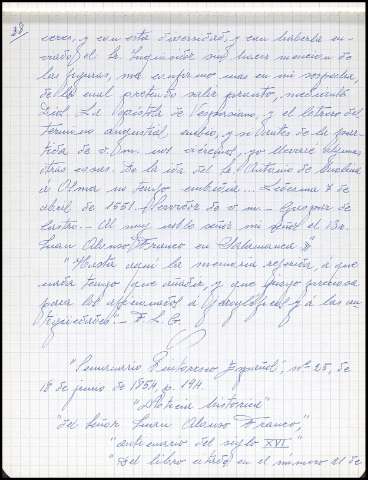 38
ceres, y con esta diversidad, y con haberla en-
viado el Sr. Inquisidor sin hacer mencion de
las figuras, me confirmo mas en mi sospecha,
de la cual pretendo salir pronto, mediante
Dios. La Apostola de Vespasiano y el letrero del
termino augustal, envio, y si antes de la par-
tida de v. m. nos vieremos, yo llevaré algunas
otras cosas. De la ida del Sr. Antonio de
á Alma no tengo embidia... Ledesma 7 de
abril de 1551. Servidor de v. m. - Gaspar de
Castro. - Al muy noble señor mi señor el Br.
Juan Alonso Franco en Salamanca."
"Hasta aqui la memoria referida, á que
nada tengo que añadir, y que juzgo preciosa
para los aficionados á y á las an-
tigüedades". - F. L. G.
"Semanario Pintoresco Español", nº 25, de
18 de junio de 1854, p. 194
"Noticia historica"
"del Señor Juan Alonso Franco,"
"anticuario del siglo XVI"
"Del libro citado en el número 21 de